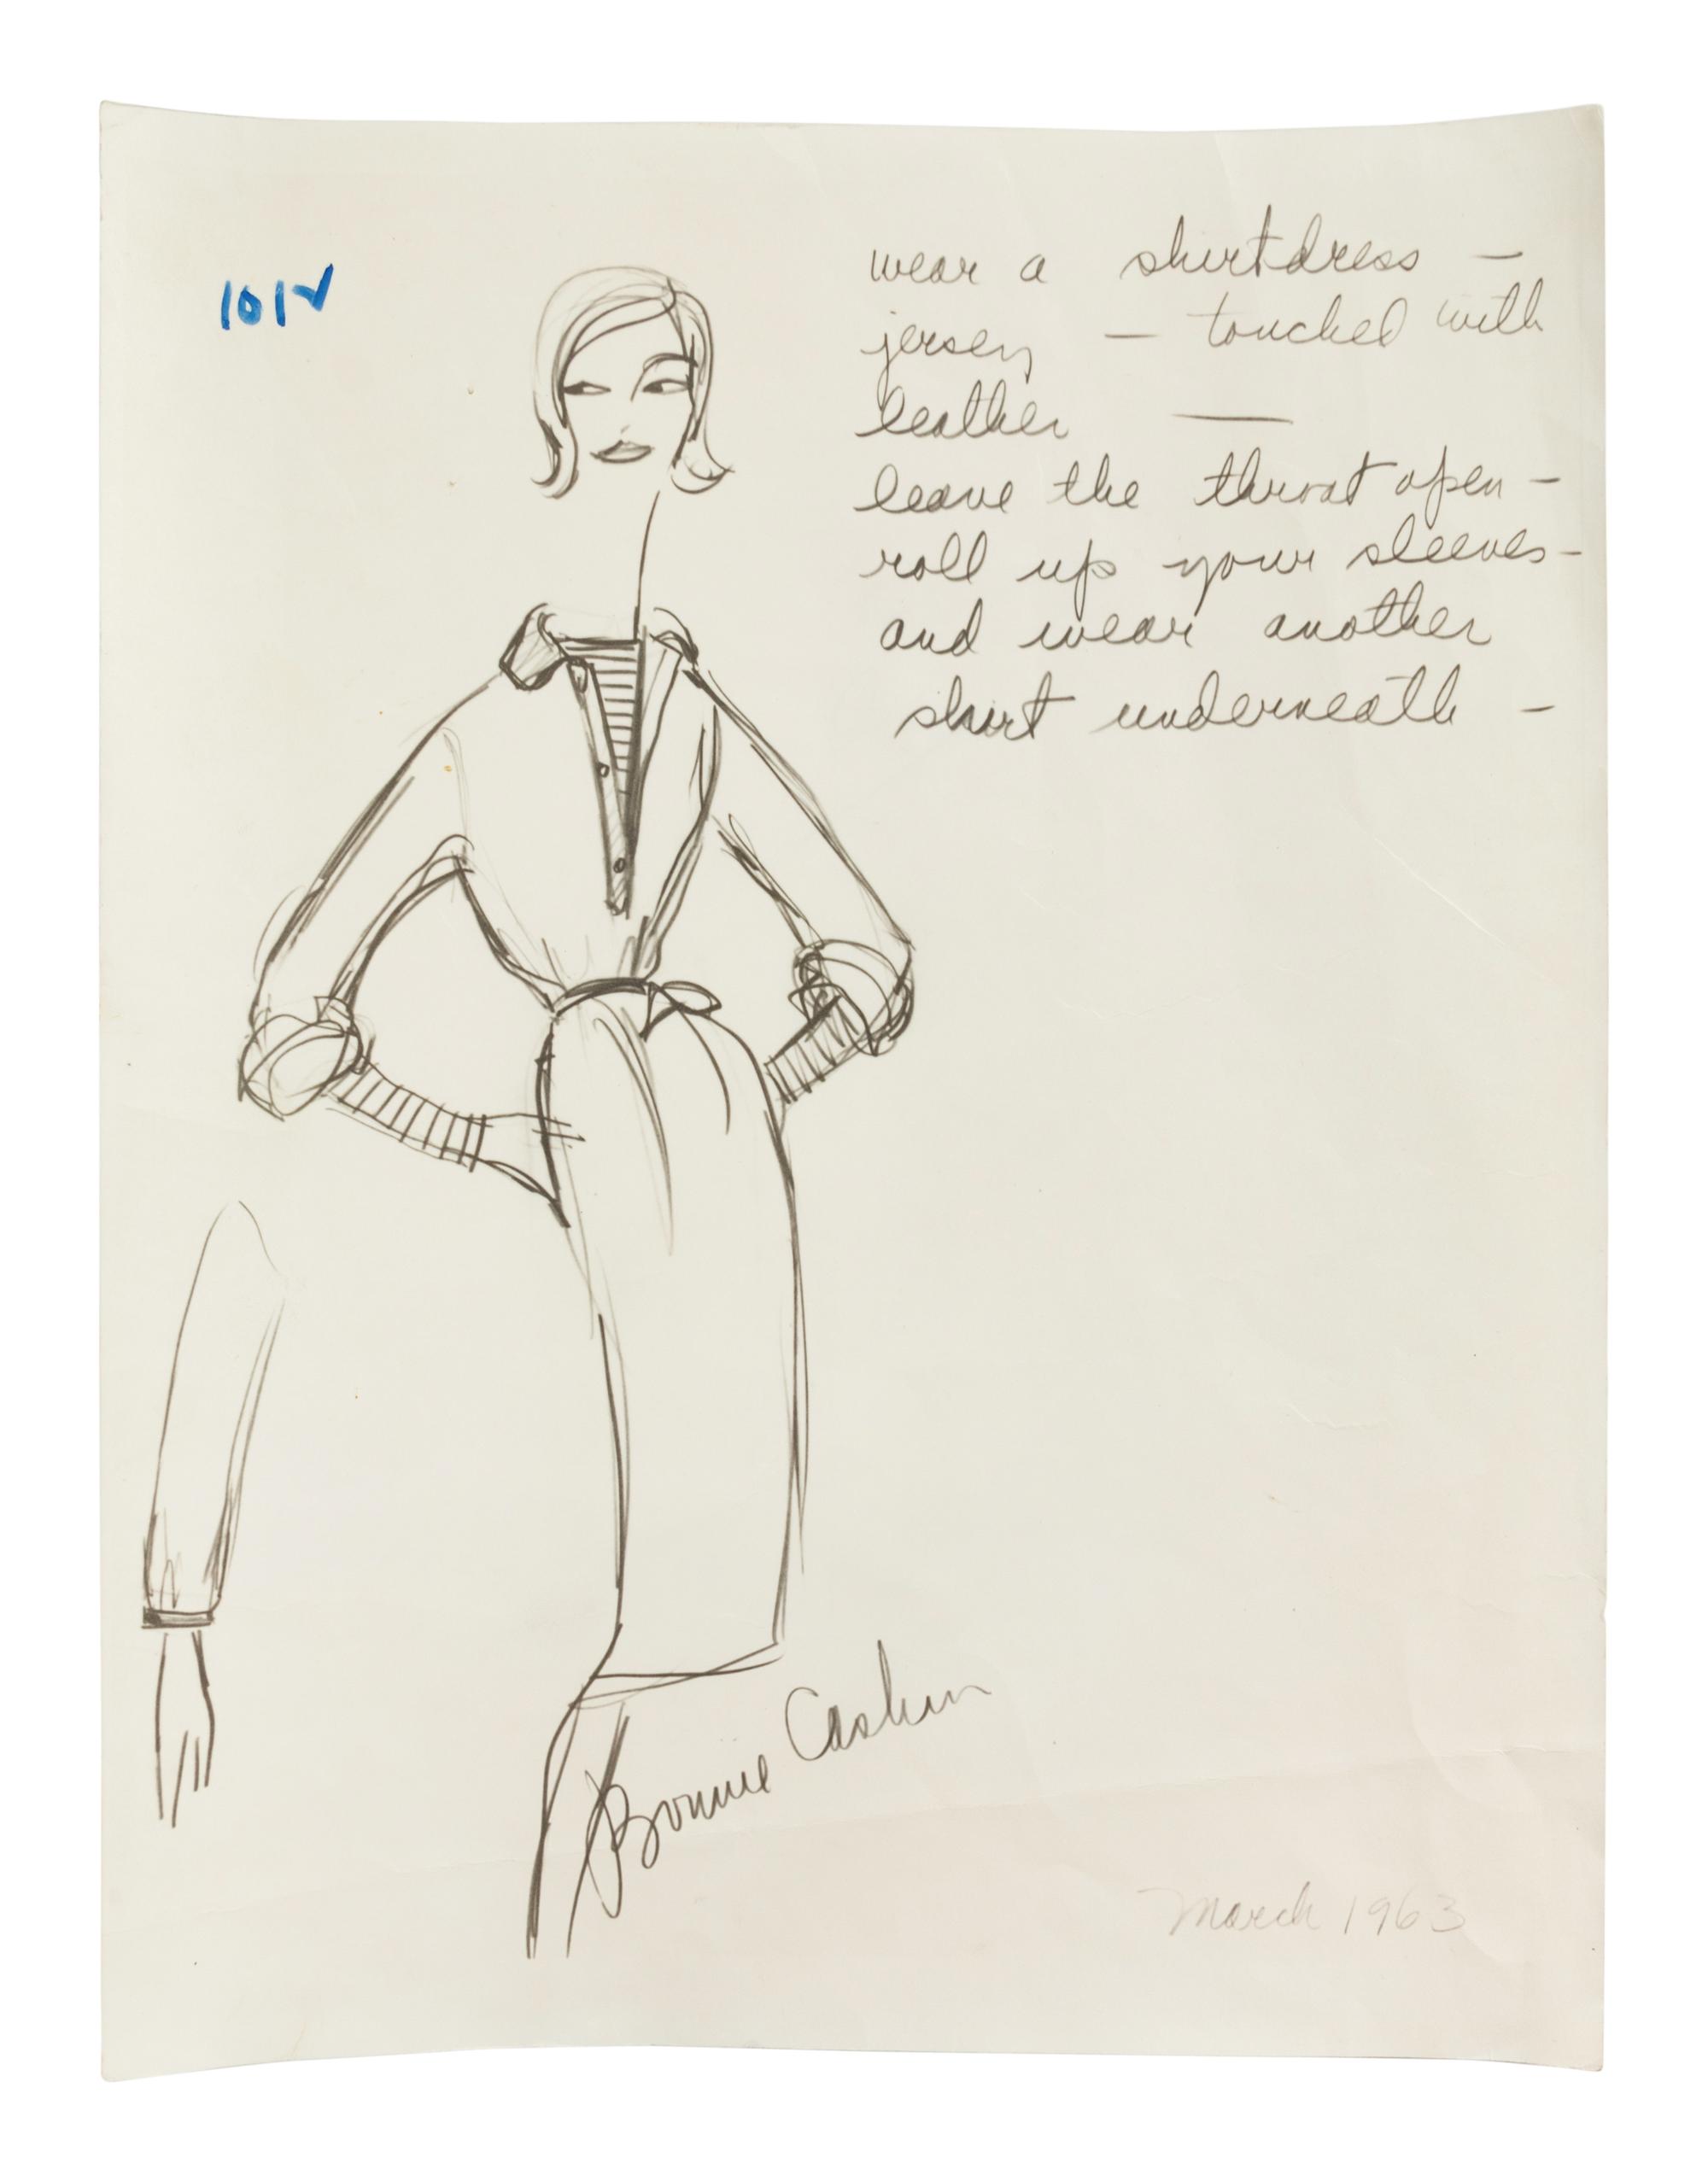 101✓
wear a shirtdress —
jersey — touched with
leather —
leave the throat open —
roll up your sleeves —
and wear another
shirt underneath —
Bonnie Cashin
March 1963